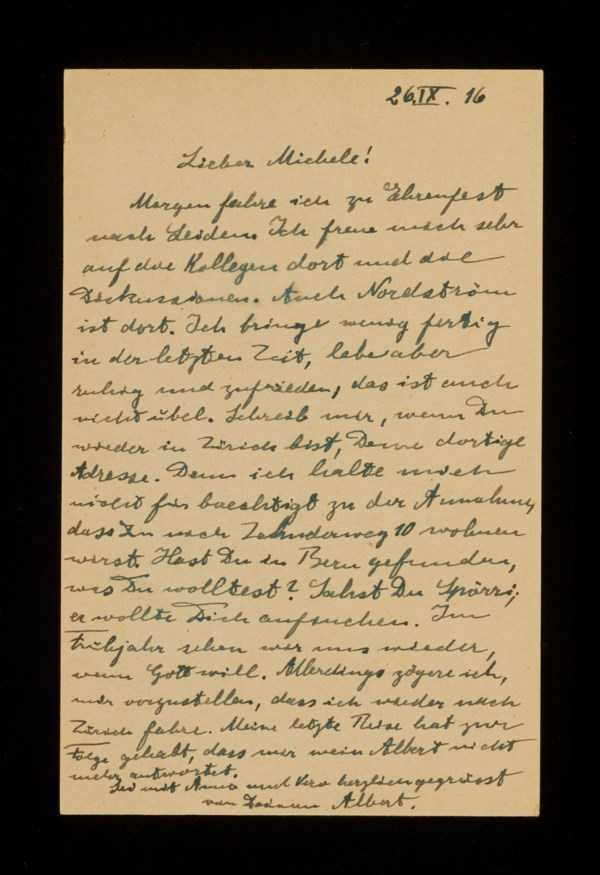 26.IX.16
Lieber Michele!
Morgen fahre ich zu Ehrenfest
nach Leiden. Ich freue mich sehr
auf die Kollegen dort und die
Diskussionen. Auch Nordström
ist dort. Ich bringe wenig fertig
in der letzten Zeit, lebe aber
ruhig und zufrieden, das ist auch
nicht übel. Schreib mir, wenn Du
wieder in Zürich bist, Deine dortige
Adresse. Denn ich halte mich
nicht für berechtigt zu der Annahme,
dass Du noch Zehnderweg 10 wohnen
wirst. Hast Du in Bern gefunden,
was Du wolltest? Sahst Du Spörri;
er wollte Dich aufsuchen. Im
Frühjahr sehen wir uns wieder,
wenn Gott will. Allerdings zögere ich,
mir vorzustellen, dass ich wieder nach
Zürich fahre. Meine letzte Reise hat zur
Folge gehabt, dass mir mein Albert nicht
mehr antwortet.
Sei mit Anna und Vero herzlich gegrüsst
von Deinem Albert.